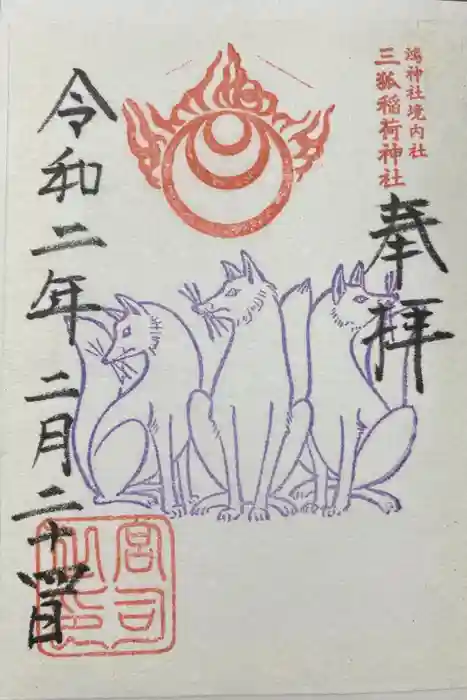 鴻神社境内社
三狐稲荷神社
奉拝
令和二年
二月二十四日
宮司
之印